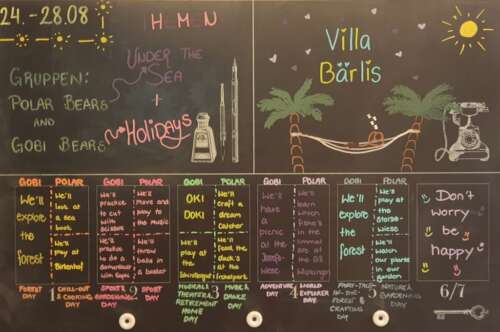 24.-28.08
GRUPPEN:
POLAR BEARS
AND
GOBI BEARS
H M N
UNDER THE
SEA
+
HOLIDAYS
Villa
Bärlis
GOBI POLAR GOBI POLAR GOBI POLAR GOBI POLAR GOBI POLAR
We'll
explore
the
forest
We'll
look at
a sea
book
We'll
play at
FOREST
DAY
1
CHILL-OUT
& COOKING
DAY
We'll
practice
to cut
with
scissors
We'll
move and
play to
the music
We'll
practice
to
throw
We'll
throw
balls in
a basket
SPORT &
GARDENING
DAY
2
SPORT
DAY
OKI
DOKI
We'll
craft a
dream
catcher
We'll
play at
the
We'll
feed the
duck's
at the
MUSICAL &
THEATER &
RETIREMENT
HOME DAY
3
MUSIC &
DANCE
DAY
We'll
have
a
picnic
at the
ADVENTURE
DAY
4
We'll
learn
which
at the
WORLD
EXPLORER
DAY
We'll
explore
the
forest
FAIRY-TALE-
IN-THE-
FOREST &
CRAFTING
DAY
5
We'll
play at
the
We'll
watch
our plants
in our
garden
NATURE &
GARDENING
DAY
Don't
worry
be
happy
6/7